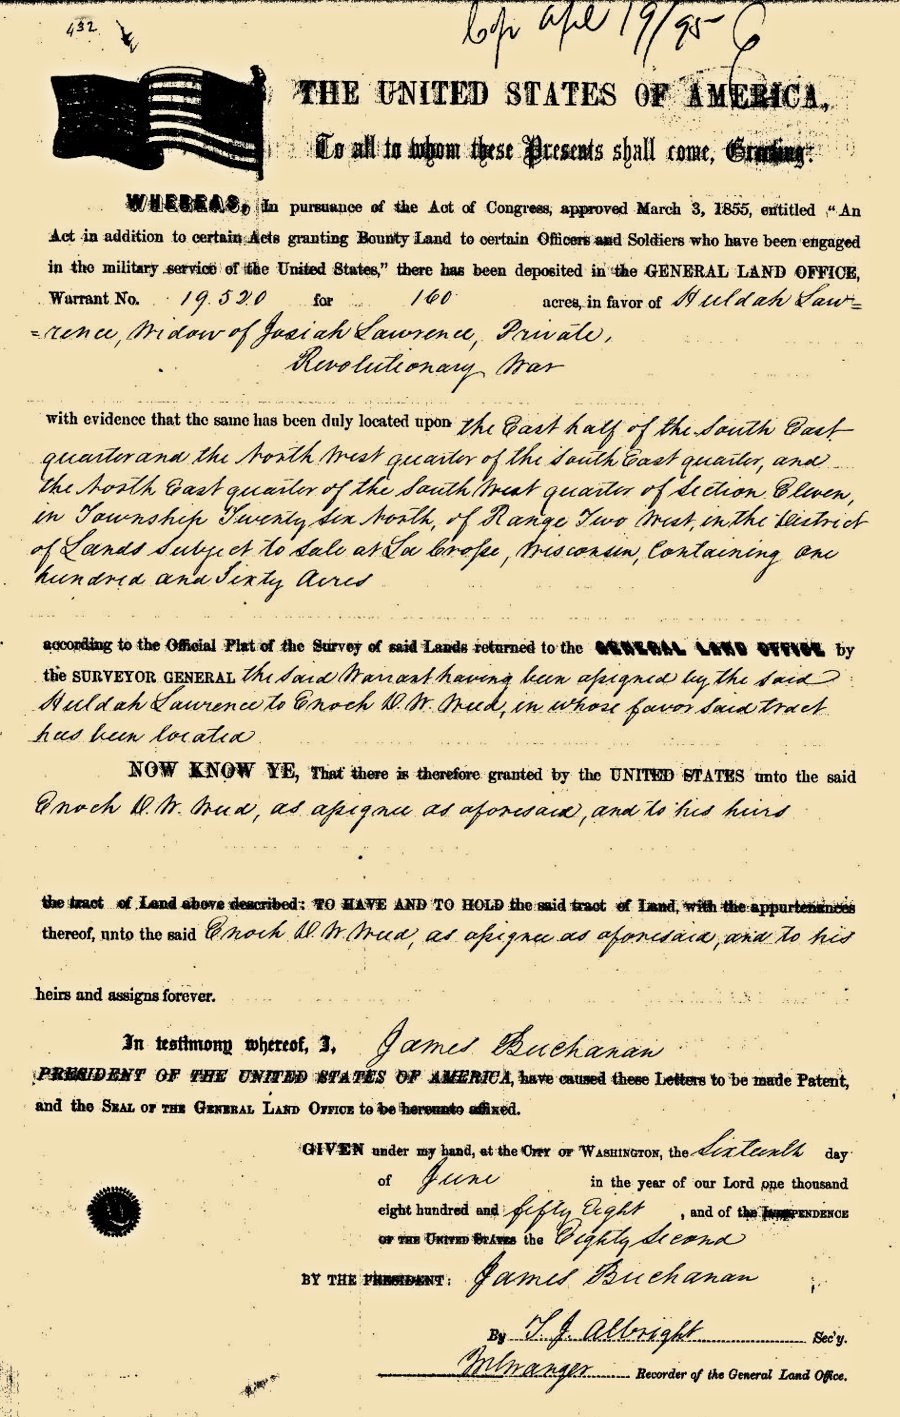 432
Cop Apl 19/95
THE UNITED STATES OF AMERICA,
To all to whom these Presents shall come, Greeting:
WHEREAS, In pursuance of the Act of Congress, approved March 3, 1855, entitled "An
Act in addition to certain Acts granting Bounty Land to certain Officers and Soldiers who have been engaged
in the military service of the United States," there has been deposited in the GENERAL LAND OFFICE,
Warrant No. 19.520 for 160 acres, in favor of Huldah Law=
=rence, Widow of Josiah Lawrence, Private,
Revolutionary War
with evidence that the same has been duly located upon the East half of the South East
quarter and the North West quarter of the South East quarter, and
the North East quarter of the South West quarter of Section Eleven,
in Township Twenty six North, of Range Two West, in the District
of Lands Subject to Sale at La Crosse, Wisconsin, Containing One
hundred and Sixty Acres
according to the Official Plat of the Survey of said Lands returned to the GENERAL LAND OFFICE by
the SURVEYOR GENERAL the said Warrant having been assigned by the said
Huldah Lawrence to Enoch D. W. Weed, in whose favor said tract
has been located
NOW KNOW YE, That there is therefore granted by the UNITED STATES unto the said
Enoch D. W. Weed, as assignee as aforesaid, and to his heirs
the tract of Land above described: TO HAVE AND TO HOLD the said tract of Land, with the appurtenances
thereof, unto the said Enoch D. W. Weed, as assignee as aforesaid, and to his
heirs and assigns forever.
In testimony whereof, I, James Buchanan
PRESIDENT OF THE UNITED STATES OF AMERICA, have caused these Letters to be made Patent,
and the SEAL OF THE GENERAL LAND OFFICE to be hereunto affixed.
GIVEN under my hand, at the CITY OF WASHINGTON, the Sixteenth day
of June in the year of our Lord one thousand
eight hundred and fifty Eight, and of the INDEPENDENCE
OF THE UNITED STATES the Eighty Second
BY THE PRESIDENT: James Buchanan
By T. J. Albright Sec'y.
Recorder of the General Land Office.